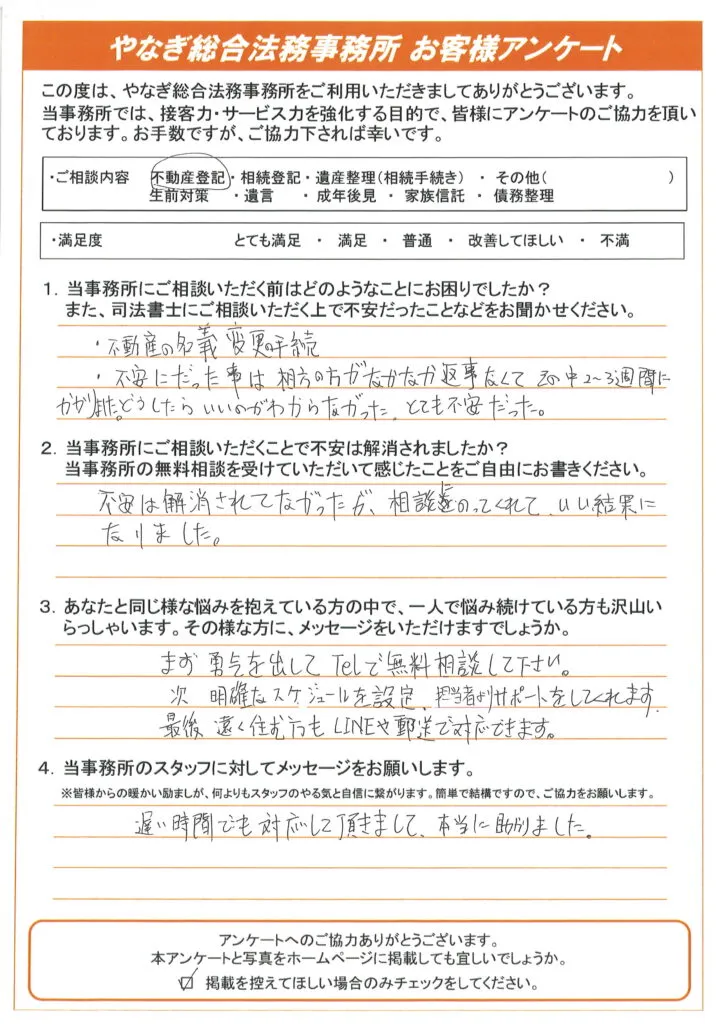 やなぎ総合法務事務所 お客様アンケート
この度は、やなぎ総合法務事務所をご利用いただきましてありがとうございます。
当事務所では、接客力・サービス力を強化する目的で、皆様にアンケートのご協力を頂いております。お手数ですが、ご協力下されば幸いです。
・ご相談内容 不動産登記・相続登記・遺産整理(相続手続き) ・ その他( )
生前対策 ・遺言 ・ 成年後見 ・ 家族信託 ・ 債務整理
・満足度 とても満足 ・ 満足 ・ 普通 ・ 改善してほしい ・ 不満
1. 当事務所にご相談いただく前はどのようなことにお困りでしたか?
また、司法書士にご相談いただく上で不安だったことなどをお聞かせください。
・不動産の名義変更の手続
・不安にだった事は相方の方がなかなか返事なくて その中2〜3週間に
かかりました。どうしたらいいのがわからなかった。とても不安だった。
2. 当事務所にご相談いただくことで不安は解消されましたか?
当事務所の無料相談を受けていただいて感じたことをご自由にお書きください。
不安は解消されてなかったが、相談にのってくれて、いい結果に
なりました。
3. あなたと同じ様な悩みを抱えている方の中で、一人で悩み続けている方も沢山い
らっしゃいます。その様な方に、メッセージをいただけますでしょうか。
まず 勇気を出して Telで無料相談して下さい。
次 明確なスケジュールを設定、担当者よりサポートをしてくれます.
最後 遠く住む方も LINEや郵送で対応できます。
4. 当事務所のスタッフに対してメッセージをお願いします。
※皆様からの暖かい励ましが、何よりもスタッフのやる気と自信に繋がります。簡単で結構ですので、ご協力をお願いします。
遅い時間でも対応して頂きまして、本当に助かりました。
アンケートへのご協力ありがとうございます。
本アンケートと写真をホームページに掲載しても宜しいでしょうか。
掲載を控えてほしい場合のみチェックをしてください。